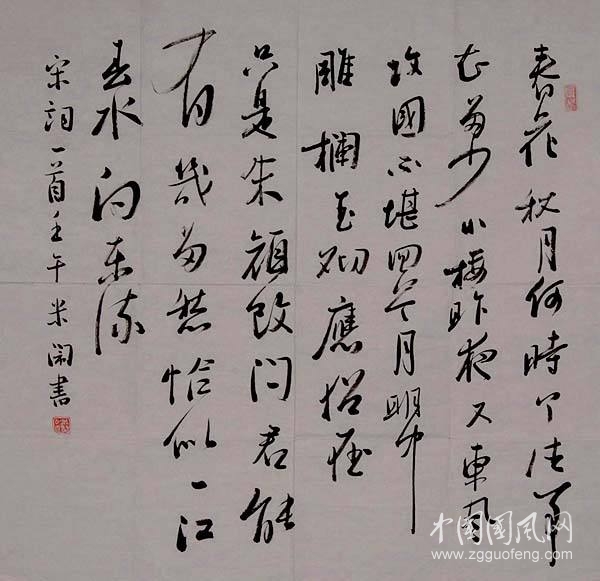 春花秋月何時了往事
知多少小樓昨夜又東風
故國不堪回首月明中
雕欄玉砌應猶在
只是朱顏改問君能
有幾多愁恰似一江
春水向東流
宋詞一首壬午米書
中国国风网
www.zgguofeng.com